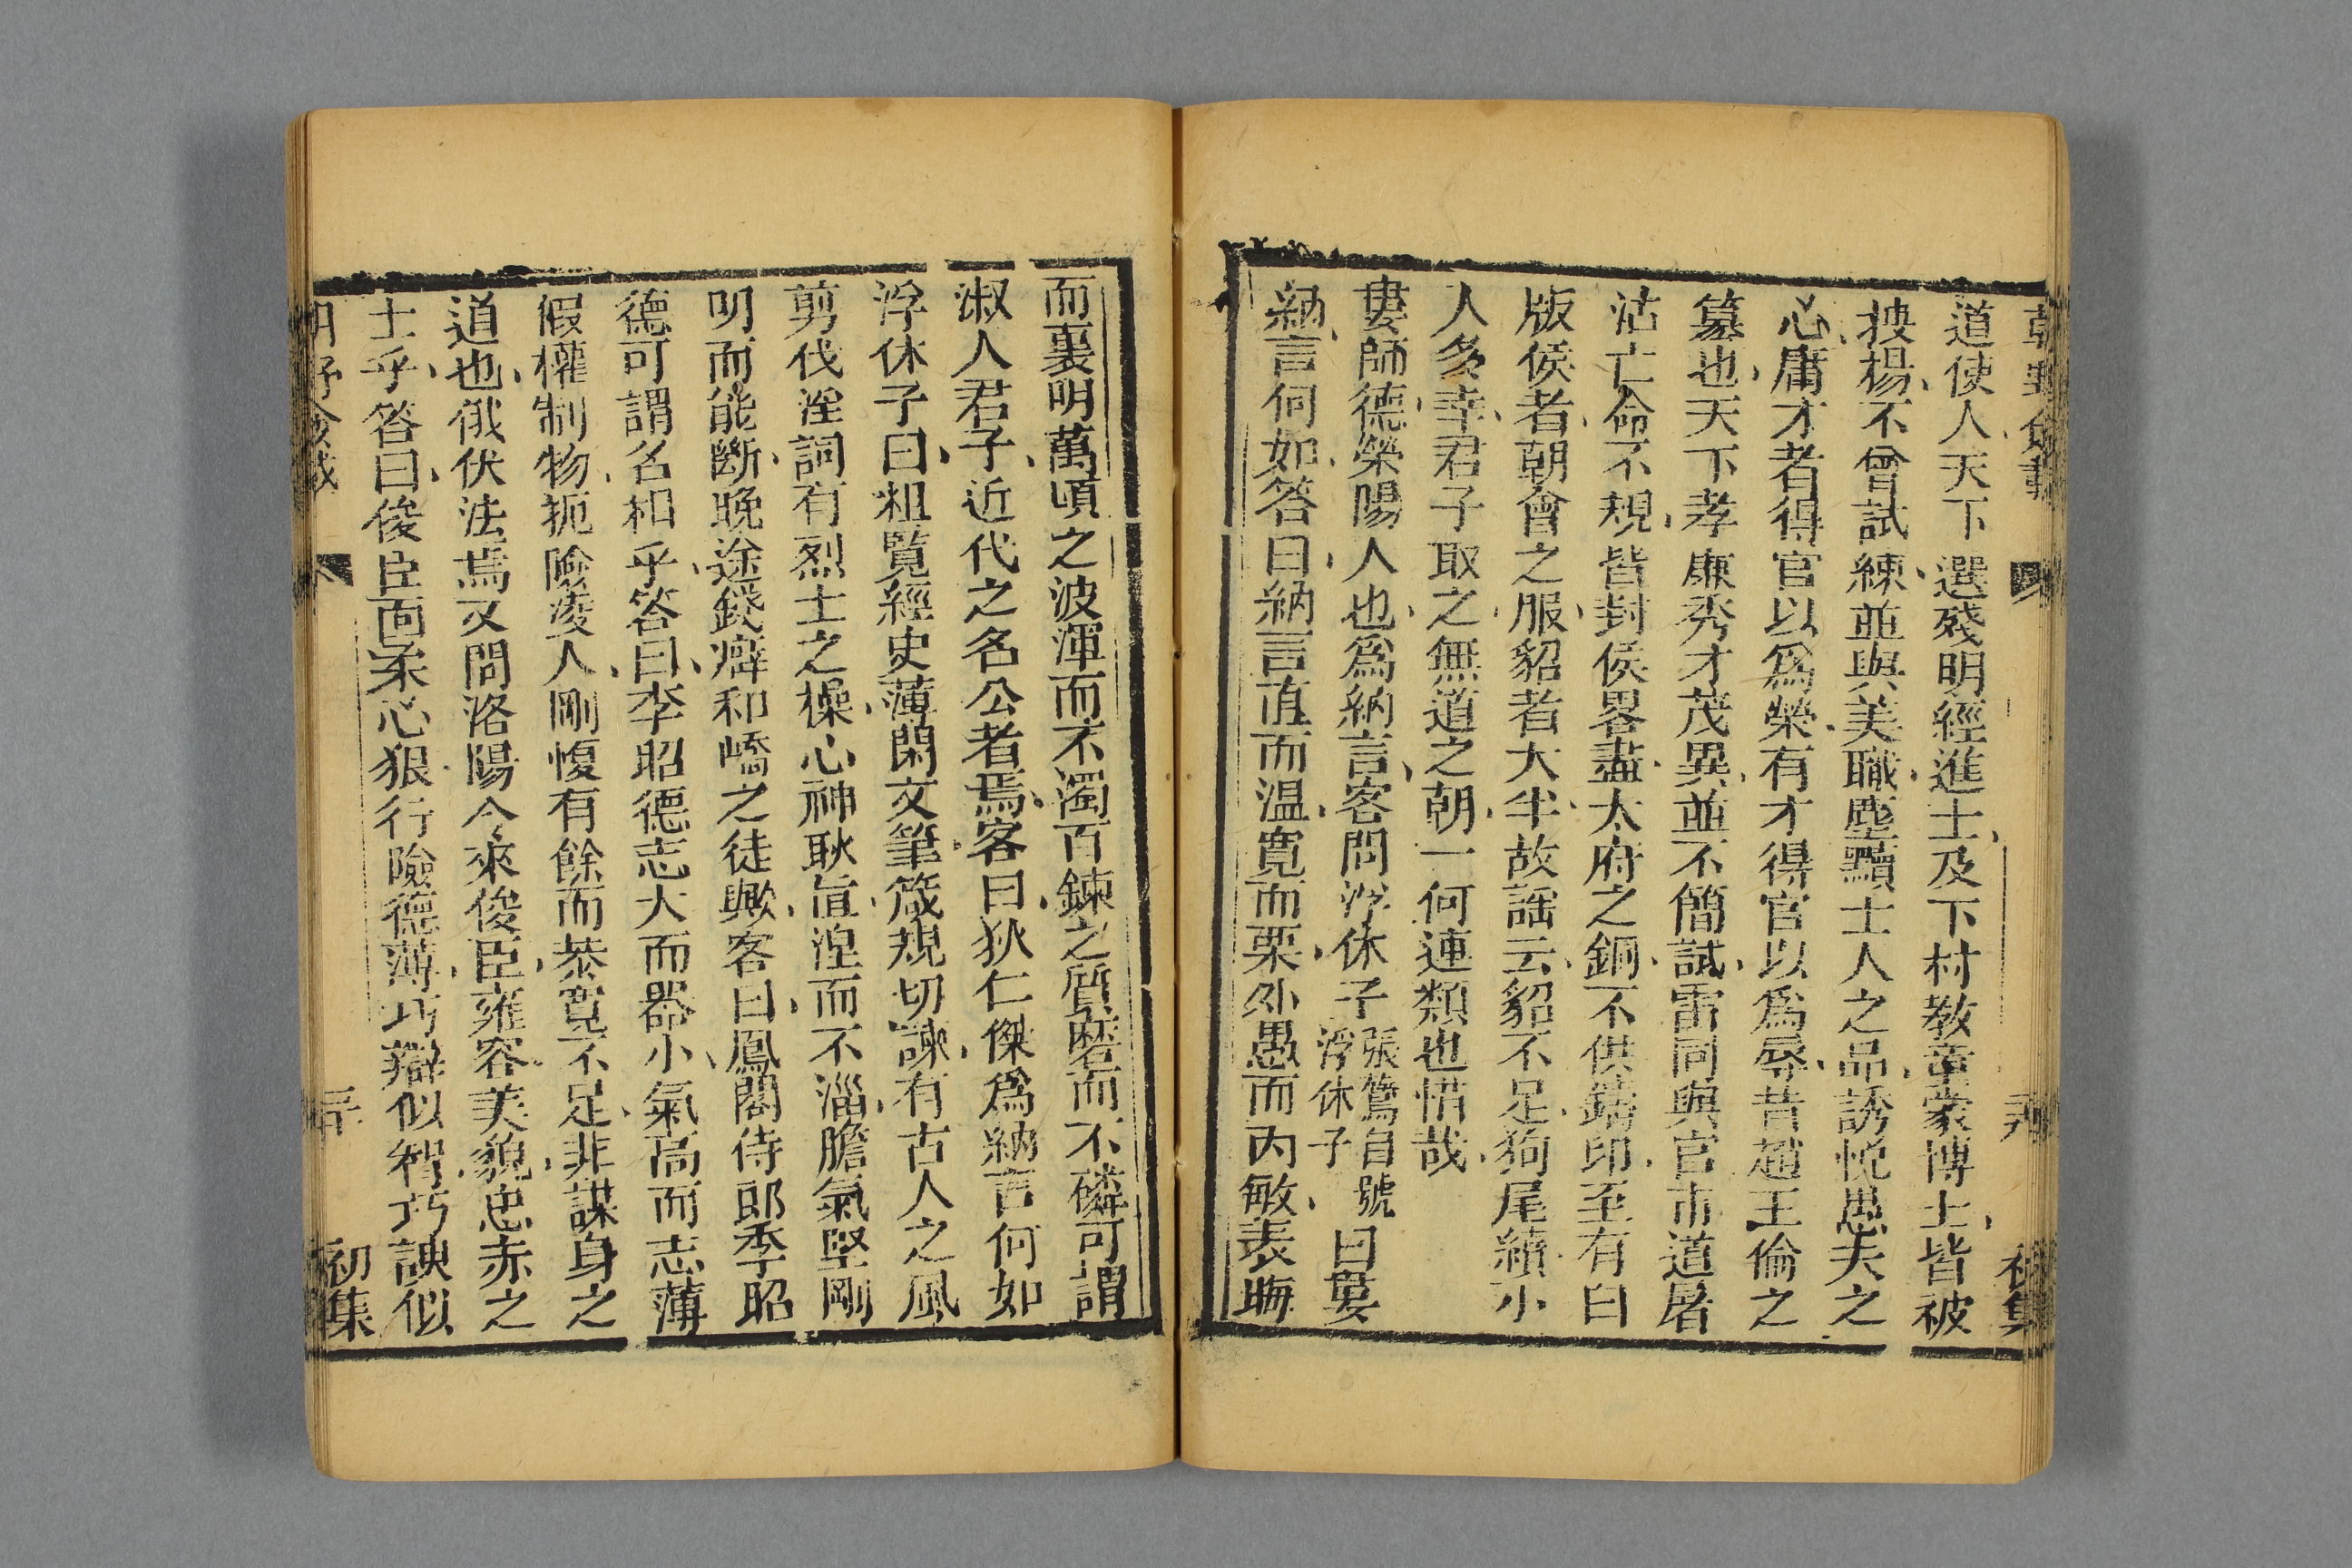 朝野僉載
初集
道使人天下選殘明經進士及下村教童蒙博士皆被
搜揚不曾試練並與美職塵黷士人之品誘悅愚夫之
心庸才者得官以爲榮有才得官以爲辱昔趙王倫之
篡也天下孝廉秀才茂異並不簡試雷同與官市道屠
沽亡命不規皆封侯畧盡太府之銅不供鑄印至有白
版侯者朝會之服貂者大半故謡云貂不足狗尾續小
人多幸君子取之無道之朝一何連類也惜哉
婁師德榮陽人也爲納言客問浮休子張鷟自號浮休子曰婁
納言何如答曰納言直而温寬而栗外愚而内敏表晦
而裏明萬頃之波渾而不濁百鍊之質磨而不磷可謂
淑人君子近代之名公者焉客曰狄仁傑爲納言何如
浮休子曰粗覽經史薄閑文筆箴規切諫有古人之風
剪伐淫詞有烈士之操心神耿直涅而不淄膽氣堅剛
明而能斷晚途錢癖和嶠之徒歟客曰鳳閣侍郎李昭
德可謂名相乎答曰李昭德志大而器小氣高而志薄
假權制物扼險凌人剛愎有餘而恭寬不足非謀身之
道也俄伏法焉又問洛陽令來俊臣雍容美貌忠赤之
士乎答曰俊臣面柔心狠行險德薄巧辯似智巧諛似
初集